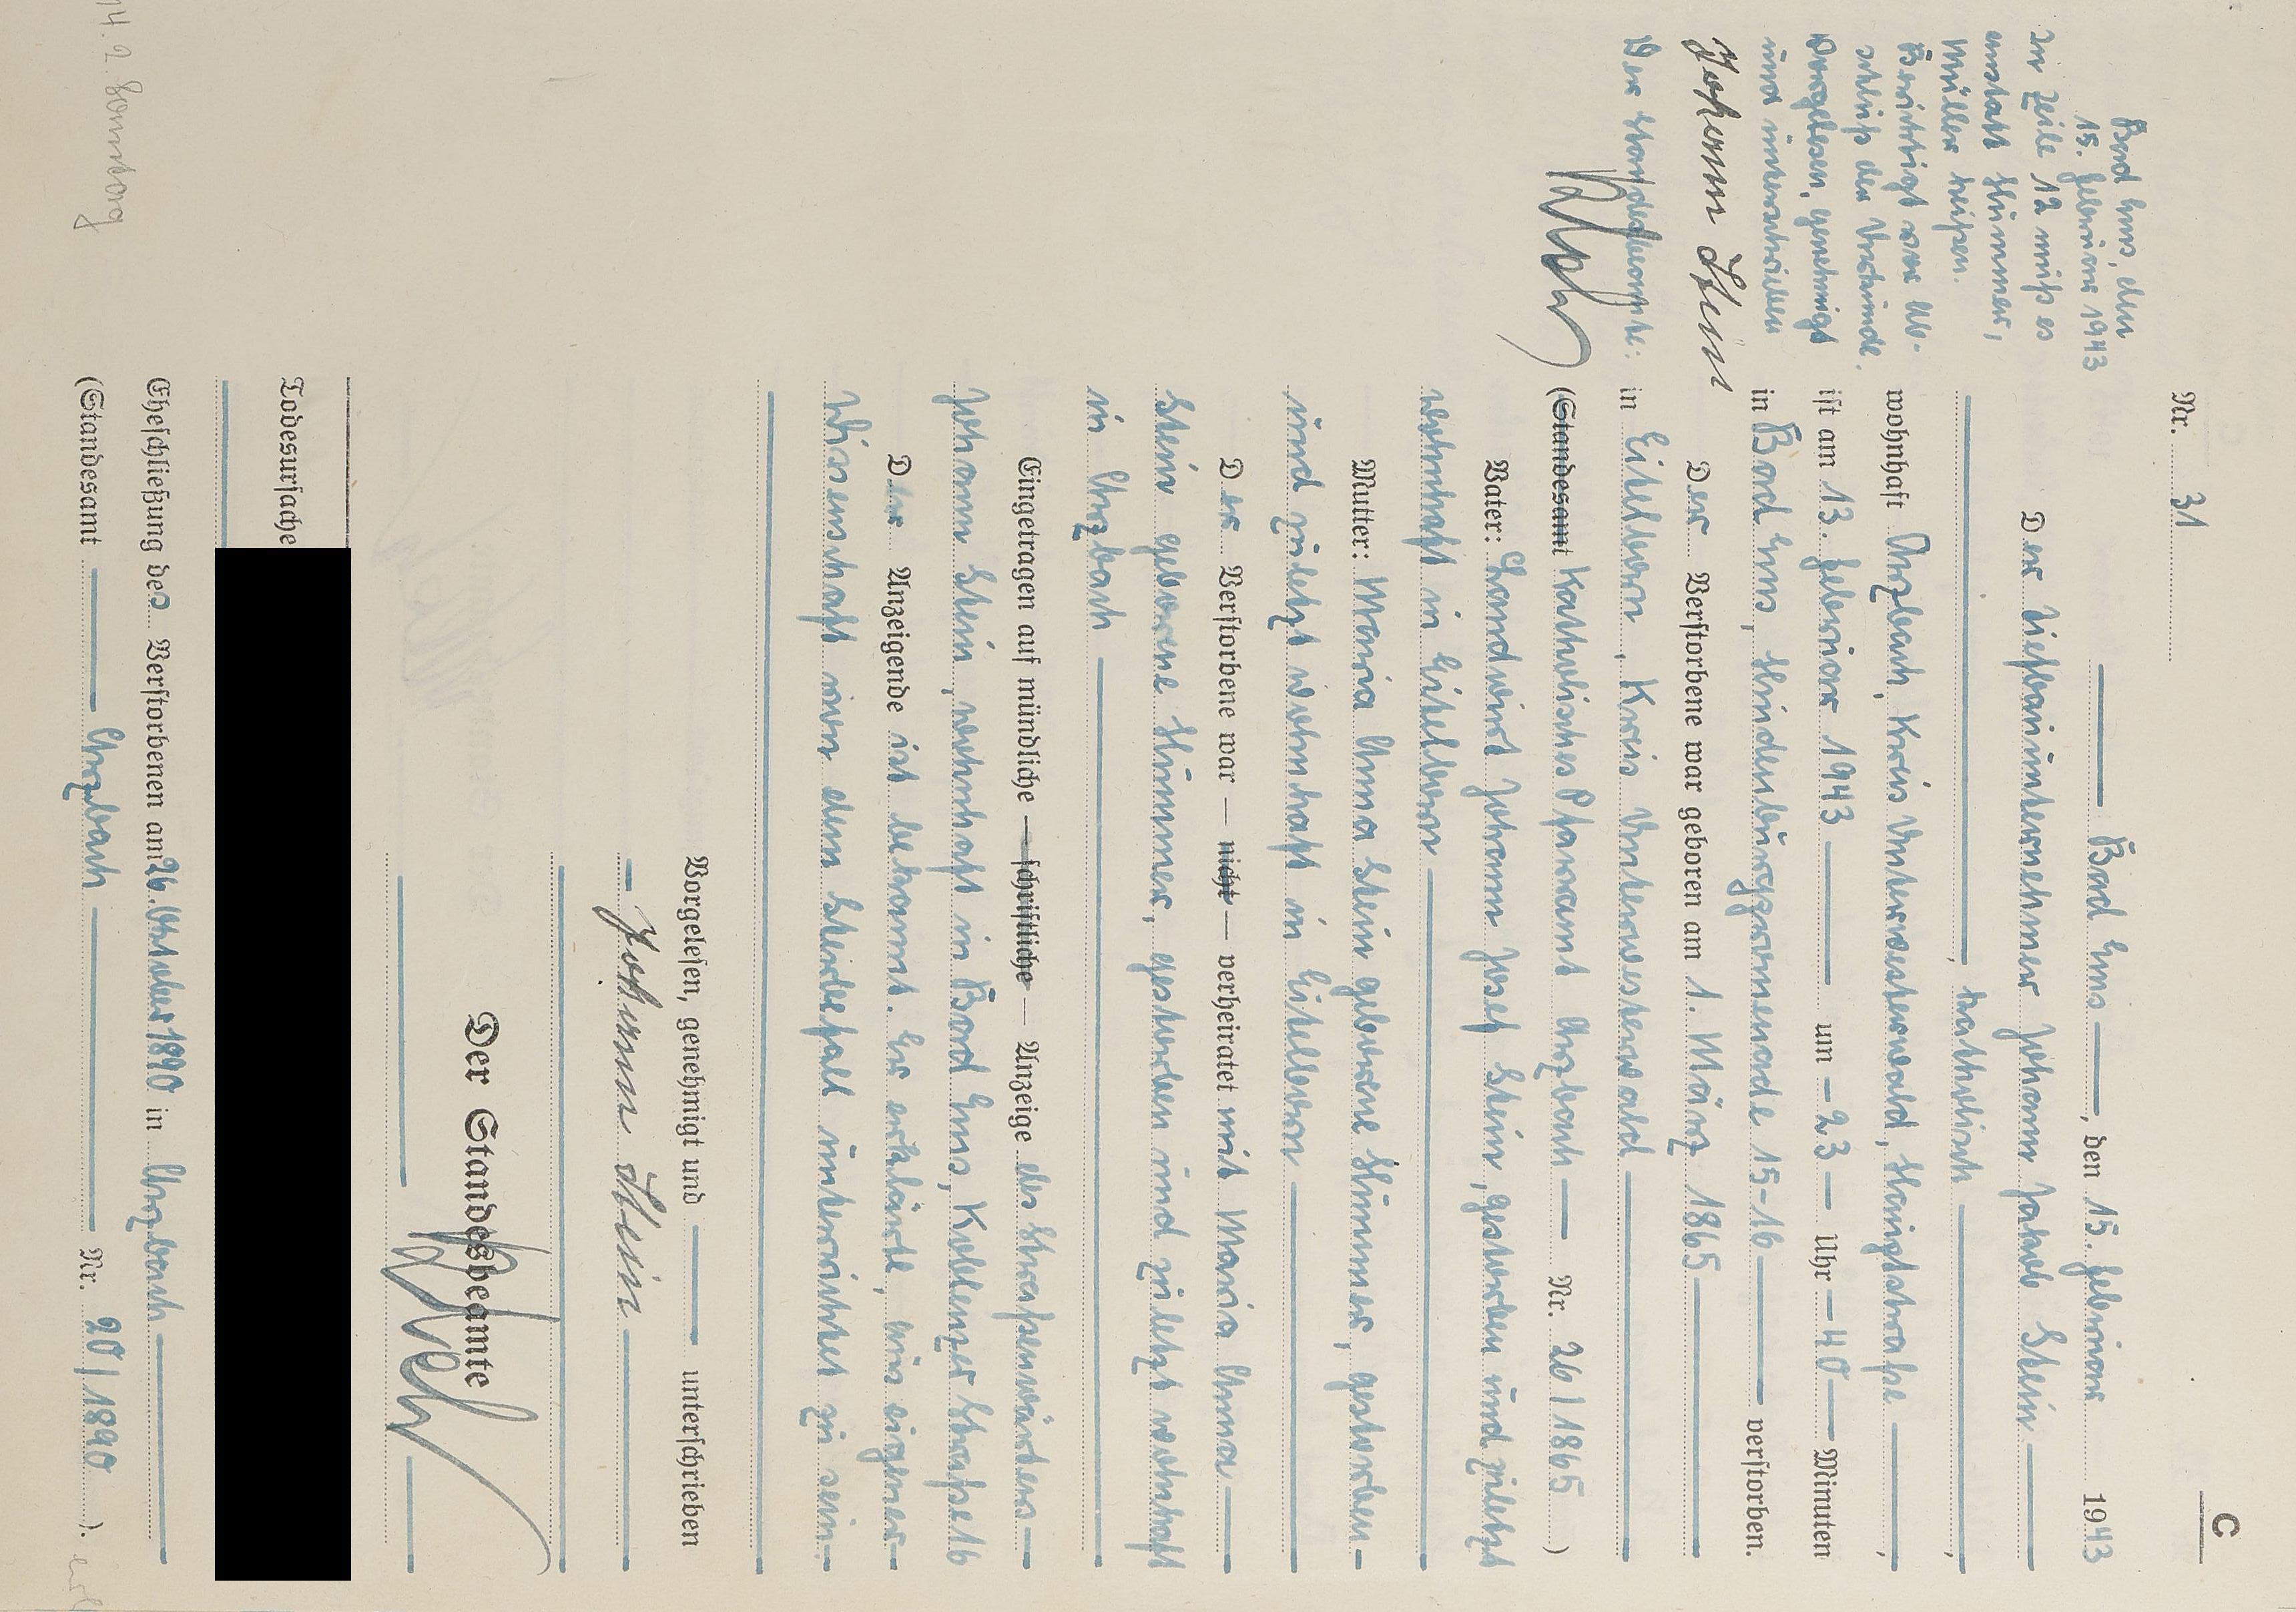 C
Nr. 31
Bad Ems, den 15. Februar 1943
Der Tiefbauunternehmer Johann Jakob Stein
, katholisch ,
wohnhaft Arzbach, Kreis Unterwesterwald, Hauptstraße ,
ist am 13. Februar 1943 um - 23 - Uhr - 40 - Minuten
in Bad Ems, Hindenburgpromenade 15-16 verstorben.
Der Verstorbene war geboren am 1. März 1865
in Eitelborn, Kreis Unterwesterwald
(Standesamt Katholisches Pfarramt Arzbach Nr. 26/1865 )
Vater: Landwirt Johann Josef Stein, gestorben und zuletzt
wohnhaft in Eitelborn
Mutter: Maria Anna Stein geborene Stimmer, gestorben-
und zuletzt wohnhaft in Eitelborn
Der Verstorbene war — nicht — verheiratet mit Maria Anna
Stein geborene Stimmer, gestorben und zuletzt wohnhaft
in Arzbach
Eingetragen auf mündliche — schriftliche — Anzeige des Straßenwärters
Johann Stein, wohnhaft in Bad Ems, Koblenzer Straße 16
Der Anzeigende ist bekannt. Er erklärte, aus eigener
Wissenschaft von dem Sterbefall unterrichtet zu sein.
Vorgelesen, genehmigt und unterschrieben
Johann Stein
Der Standesbeamte
Todesursache
Eheschließung des Verstorbenen am 26. Oktober 1890 in Arzbach
(Standesamt Arzbach Nr. 20/1890 ).
Bad Ems, den
15. Februar 1943
In Zeile 12 muß es
anstatt Stimmer,
Müller heißen.
Berichtigt vor Ab-
schluß der Urkunde.
Vorgelesen, genehmigt
und unterschrieben
Johann Stein
Der Standesbeamte:
14. 2.